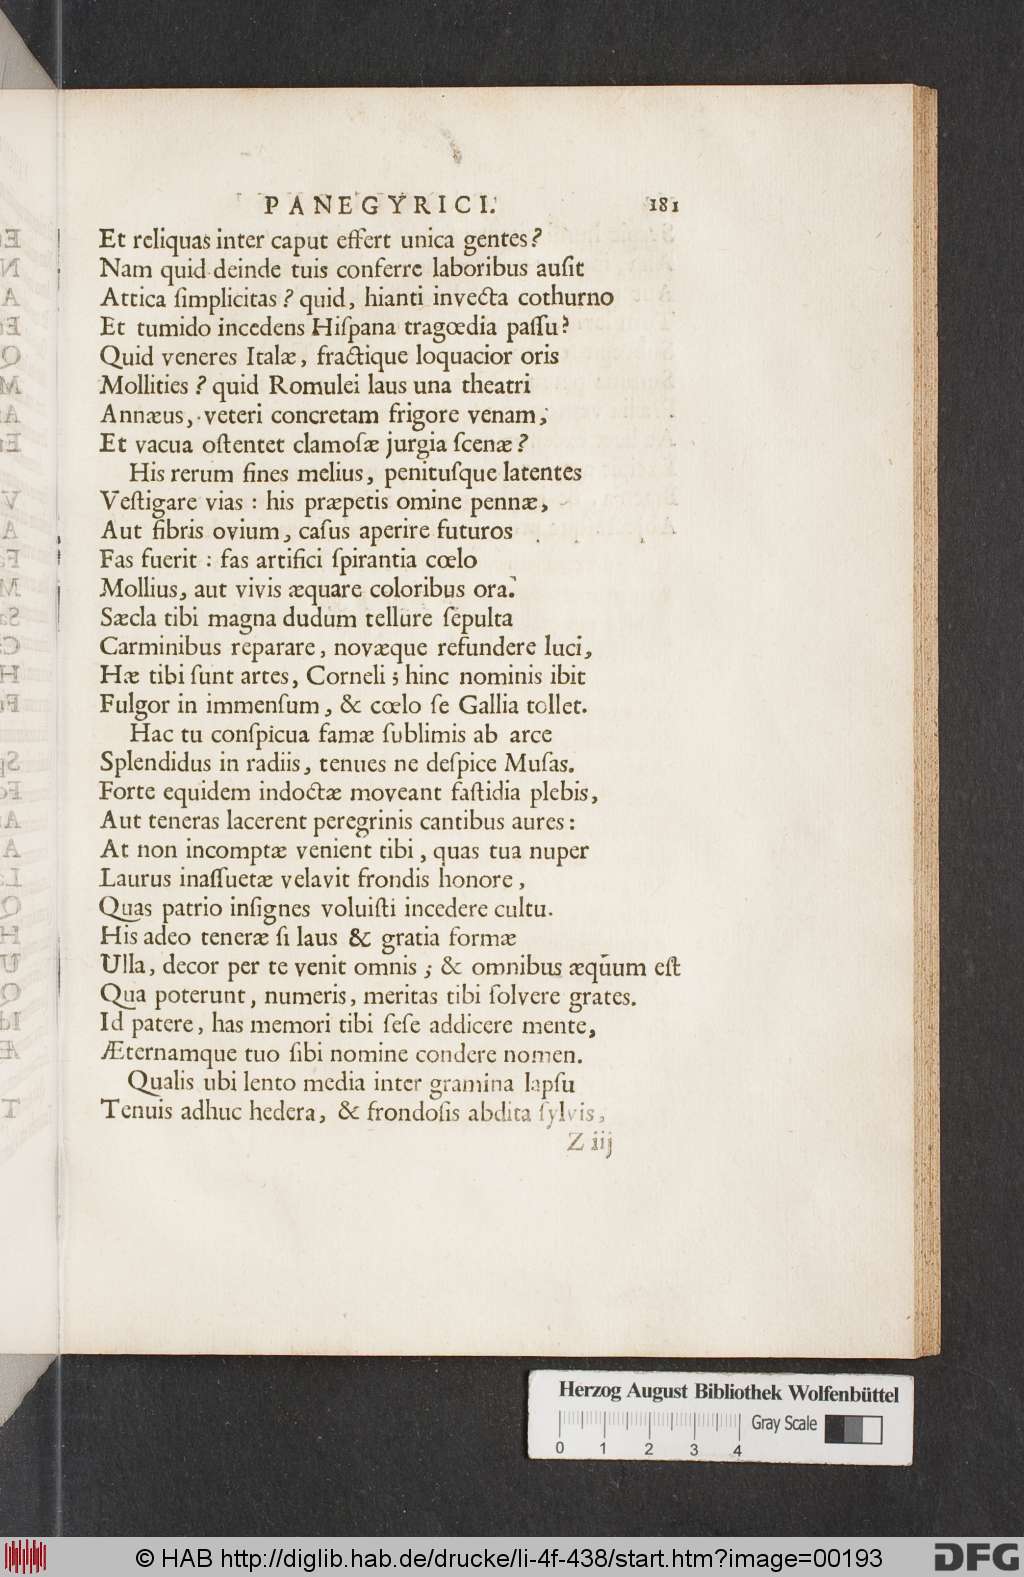 PANEGYRICI. 181
Et reliquas inter caput effert unica gentes?
Nam quid deinde tuis conferre laboribus auſit
Attica ſimplicitas? quid, hianti invecta cothurno
Et tumido incedens Hiſpana tragœdia paſſu?
Quid veneres Italæ, fractique loquacior oris
Mollities? quid Romulei laus una theatri
Annæus, veteri concretam frigore venam,
Et vacua oſtentet clamoſæ jurgia ſcenæ?
His rerum fines melius, penituſque latentes
Veſtigare vias : his præpetis omine pennæ,
Aut fibris ovium, caſus aperire futuros
Fas fuerit : fas artifici ſpirantia cœlo
Mollius, aut vivis æquare coloribus ora.
Sæcla tibi magna dudum tellure ſepulta
Carminibus reparare, novæque refundere luci,
Hæ tibi ſunt artes, Corneli; hinc nominis ibit
Fulgor in immenſum, & cœlo ſe Gallia tollet.
Hac tu conſpicua famæ ſublimis ab arce
Splendidus in radiis, tenues ne deſpice Muſas.
Forte equidem indoctæ moveant faſtidia plebis,
Aut teneras lacerent peregrinis cantibus aures:
At non incomptæ venient tibi, quas tua nuper
Laurus inaſſuetæ velavit frondis honore,
Quas patrio inſignes voluiſti incedere cultu.
His adeo teneræ ſi laus & gratia formæ
Ulla, decor per te venit omnis; & omnibus æquum eſt
Qua poterunt, numeris, meritas tibi ſolvere grates.
Id patere, has memori tibi ſeſe addicere mente,
Æternamque tuo ſibi nomine condere nomen.
Qualis ubi lento media inter gramina lapſu
Tenuis adhuc hedera, & frondoſis abdita ſylvis,
Z iij
Herzog August Bibliothek Wolfenbüttel
Gray Scale
0 1 2 3 4
© HAB http://diglib.hab.de/drucke/li-4f-438/start.htm?image=00193
DFG